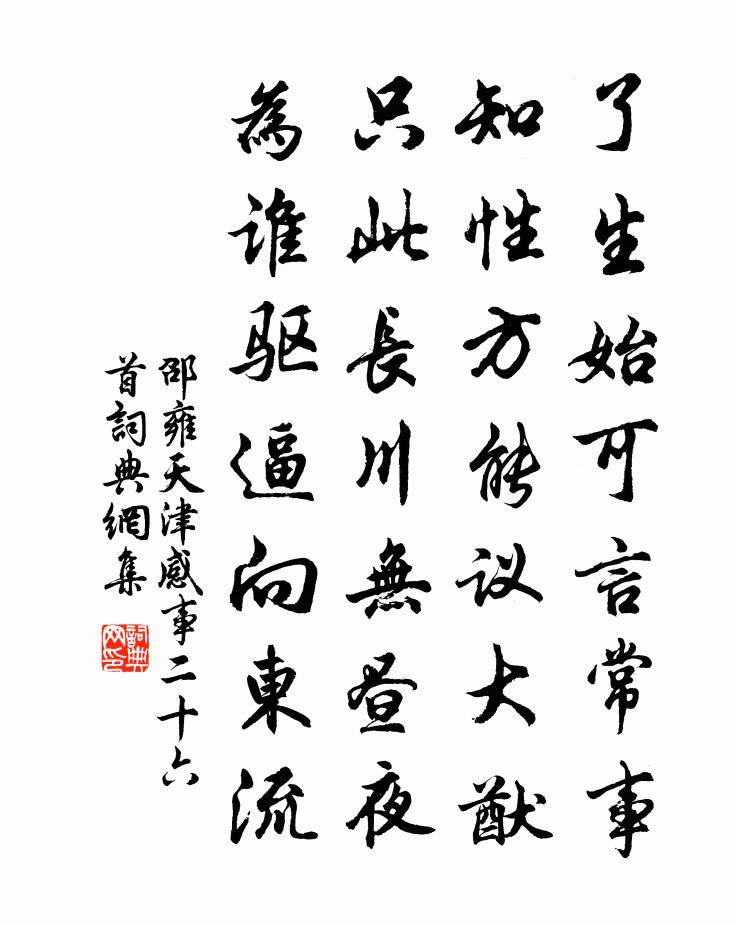 了生始可言常事
知性方能议大猷
只此長川無昼夜
為谁驱逼向東流
邵雍天津感事二十六
首詞典網集
詞典
网印